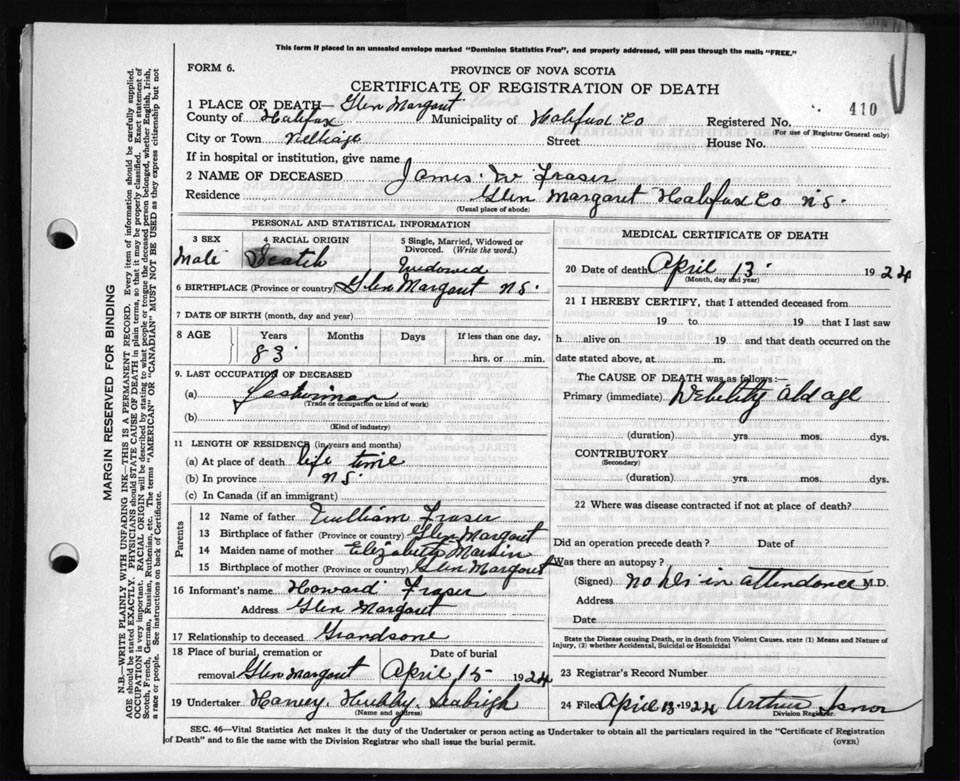 This form if placed in an unsealed envelope marked "Dominion Statistics Free", and properly addressed, will pass through the mails "FREE."
FORM 6.
PROVINCE OF NOVA SCOTIA
CERTIFICATE OF REGISTRATION OF DEATH
1 PLACE OF DEATH— Glen Margaret
410
County of Halifax Municipality of Halifax Co Registered No.
(For use of Registrar General only)
City or Town Village Street House No.
If in hospital or institution, give name
2 NAME OF DECEASED James W Fraser
Residence Glen Margaret Halifax Co N.S.
(Usual place of abode)
PERSONAL AND STATISTICAL INFORMATION
3 SEX 4 RACIAL ORIGIN 5 Single, Married, Widowed or Divorced. (Write the word.)
Male Scotch Widowed
6 BIRTHPLACE (Province or country) Glen Margaret N.S.
7 DATE OF BIRTH (month, day and year)
8 AGE Years Months Days If less than one day,
83 hrs. or min.
9. LAST OCCUPATION OF DECEASED
(a) Fisherman
(Trade or occupation or kind of work)
(b)
(Kind of industry)
11 LENGTH OF RESIDENCE (in years and months)
(a) At place of death life time
(b) In province N S
(c) In Canada (if an immigrant)
Parents
12 Name of father William Fraser
13 Birthplace of father (Province or country) Glen Margaret
14 Maiden name of mother Elizabeth
15 Birthplace of mother (Province or country) Glen Margaret
16 Informant's name Howard Fraser
Address Glen Margaret
17 Relationship to deceased Grandsone
18 Place of burial, cremation or Date of burial
removal Glen Margaret April 15 1924
19 Undertaker Harvey Hubley Seabright
(Name and address)
MEDICAL CERTIFICATE OF DEATH
20 Date of death April 13 1924
(Month, day and year)
21 I HEREBY CERTIFY, that I attended deceased from
19 to 19 that I last saw
h alive on 19 and that death occurred on the
date stated above, at m.
The CAUSE OF DEATH was as follows:—
Primary (immediate) Debelity old age
(duration) yrs. mos. dys.
CONTRIBUTORY
(Secondary)
(duration) yrs. mos. dys.
22 Where was disease contracted if not at place of death?
Did an operation precede death? Date of
Was there an autopsy?
(Signed) No Drs in attendance M.D.
Address
Date
State the Disease causing Death, or in death from Violent Causes, state (1) Means and Nature of
Injury, (2) whether Accidental, Suicidal or Homicidal
23 Registrar's Record Number
24 Filed April 13 1924 Arthur
Division Registrar.
SEC. 46—Vital Statistics Act makes it the duty of the Undertaker or person acting as Undertaker to obtain all the particulars required in the "Certificate of Registration
of Death" and to file the same with the Division Registrar who shall issue the burial permit.
(OVER)
MARGIN RESERVED FOR BINDING
N.B.—WRITE PLAINLY WITH UNFADING INK—THIS IS A PERMANENT RECORD. Every item of information should be carefully supplied.
AGE should be stated EXACTLY. PHYSICIANS should STATE CAUSE OF DEATH in plain terms, so that it may be properly classified. Exact statement of
OCCUPATION is very important. RACIAL ORIGIN will be described by stating to what people or tongue the deceased person belonged, whether English, Irish,
Scotch, French, German, Russian, Ruthenian, etc. The terms "AMERICAN" OR "CANADIAN" MUST NOT BE USED as they express citizenship but not
a race or people. See instructions on back of Certificate.